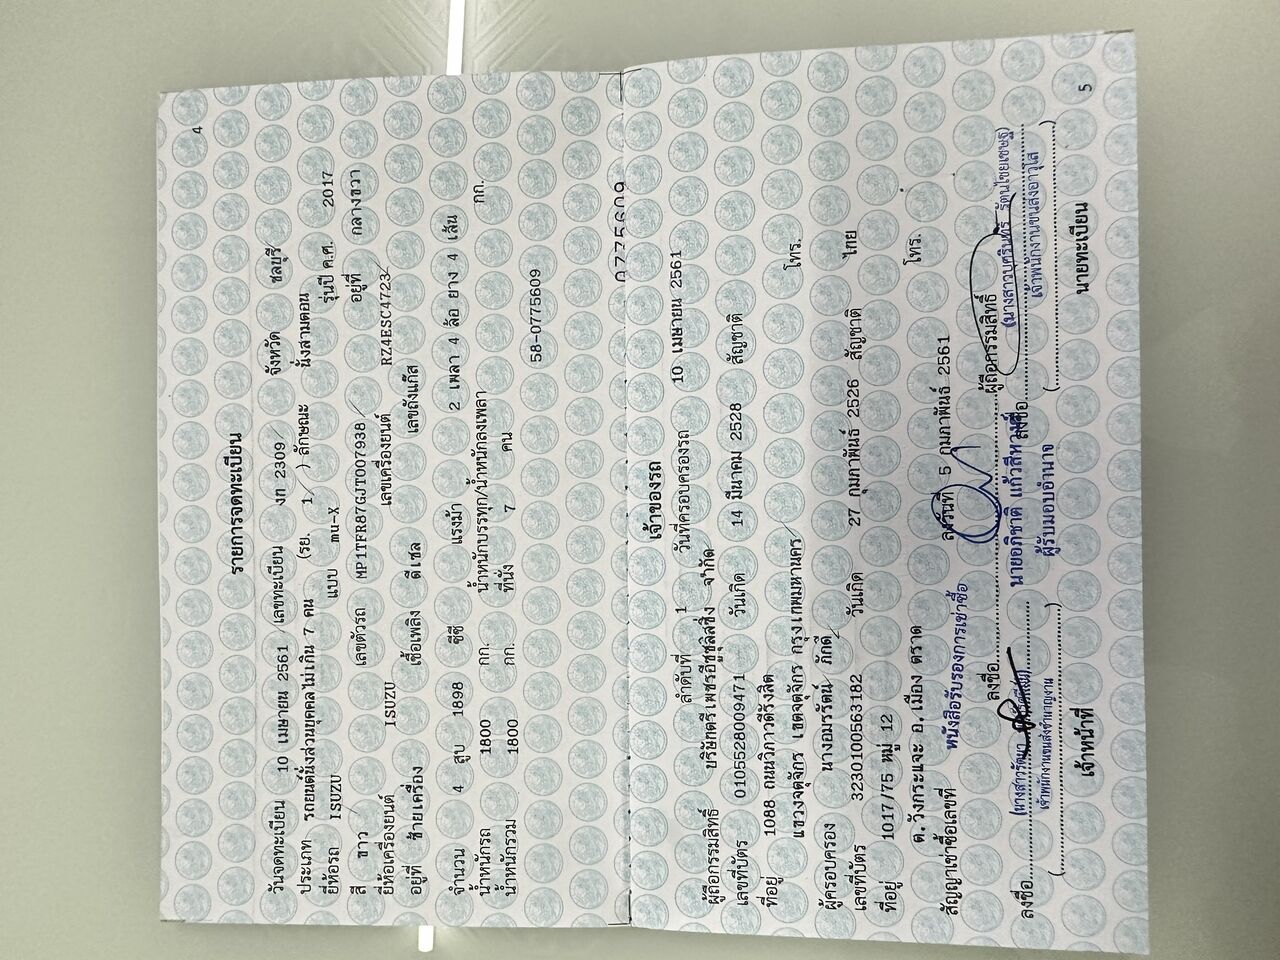 4
รายการจดทะเบียน
วันจดทะเบียน 10 เมษายน 2561 เลขทะเบียน งก 2309 จังหวัด ชลบุรี
ประเภท รถยนต์นั่งส่วนบุคคลไม่เกิน 7 คน (รย. 1 ) ลักษณะ นั่งสามตอน
ยี่ห้อรถ ISUZU แบบ mu-X รุ่นปี ค.ศ. 2017
สี ขาว เลขตัวรถ MP1TFR87GJT007938 อยู่ที่ กลางขวา
ยี่ห้อเครื่องยนต์ ISUZU เลขเครื่องยนต์ RZ4ESC4723
อยู่ที่ ซ้ายเครื่อง เชื้อเพลิง ดีเซล เลขถังแก๊ส
จำนวน 4 สูบ 1898 ซีซี แรงม้า 2 เพลา 4 ล้อ ยาง 4 เส้น
น้ำหนักรถ 1800 กก. น้ำหนักบรรทุก/น้ำหนักลงเพลา กก.
น้ำหนักรวม 1800 กก. ที่นั่ง 7 คน
58-0775609
0775609
เจ้าของรถ
ลำดับที่ 1 วันที่ครอบครองรถ 10 เมษายน 2561
ผู้ถือกรรมสิทธิ์ บริษัทตรีเพชรอีซูซุลิสซิ่ง จำกัด
เลขที่บัตร 0105528009471 วันเกิด 14 มีนาคม 2528 สัญชาติ
ที่อยู่ 1088 ถนนวิภาวดีรังสิต
แขวงจตุจักร เขตจตุจักร กรุงเทพมหานคร โทร.
ผู้ครอบครอง นางอมรรัตน์ ภักดี
เลขที่บัตร 3230100563182 วันเกิด 27 กุมภาพันธ์ 2526 สัญชาติ ไทย
ที่อยู่ 1017/75 หมู่ 12
ต.วังกระแจะ อ.เมือง ตราด โทร.
สัญญาเช่าซื้อเลขที่ หนังสือรับรองการเช่าซื้อ ลงวันที่ 5 กุมภาพันธ์ 2561
ลงชื่อ ผู้ถือกรรมสิทธิ์
นายอภิชาติ แก้วสีทวงศ์
ผู้รับมอบอำนาจ
ลงชื่อ ลงชื่อ
(นางสาวรัฒนา
เจ้าพนักงานขนส่งชำนาญงาน
เจ้าหน้าที่
(นางสาวบุศรินทร์ รัตนไชยเชษฐ์)
เจ้าพนักงานขนส่งอาวุโส
นายทะเบียน
5